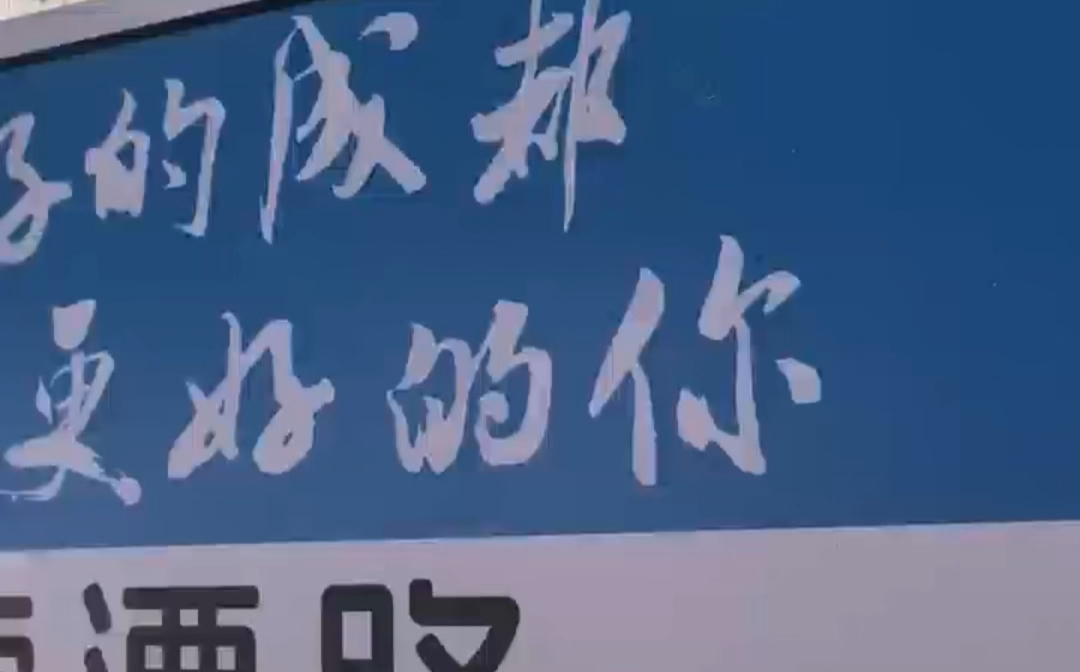 好的成都
更好的你
酒路